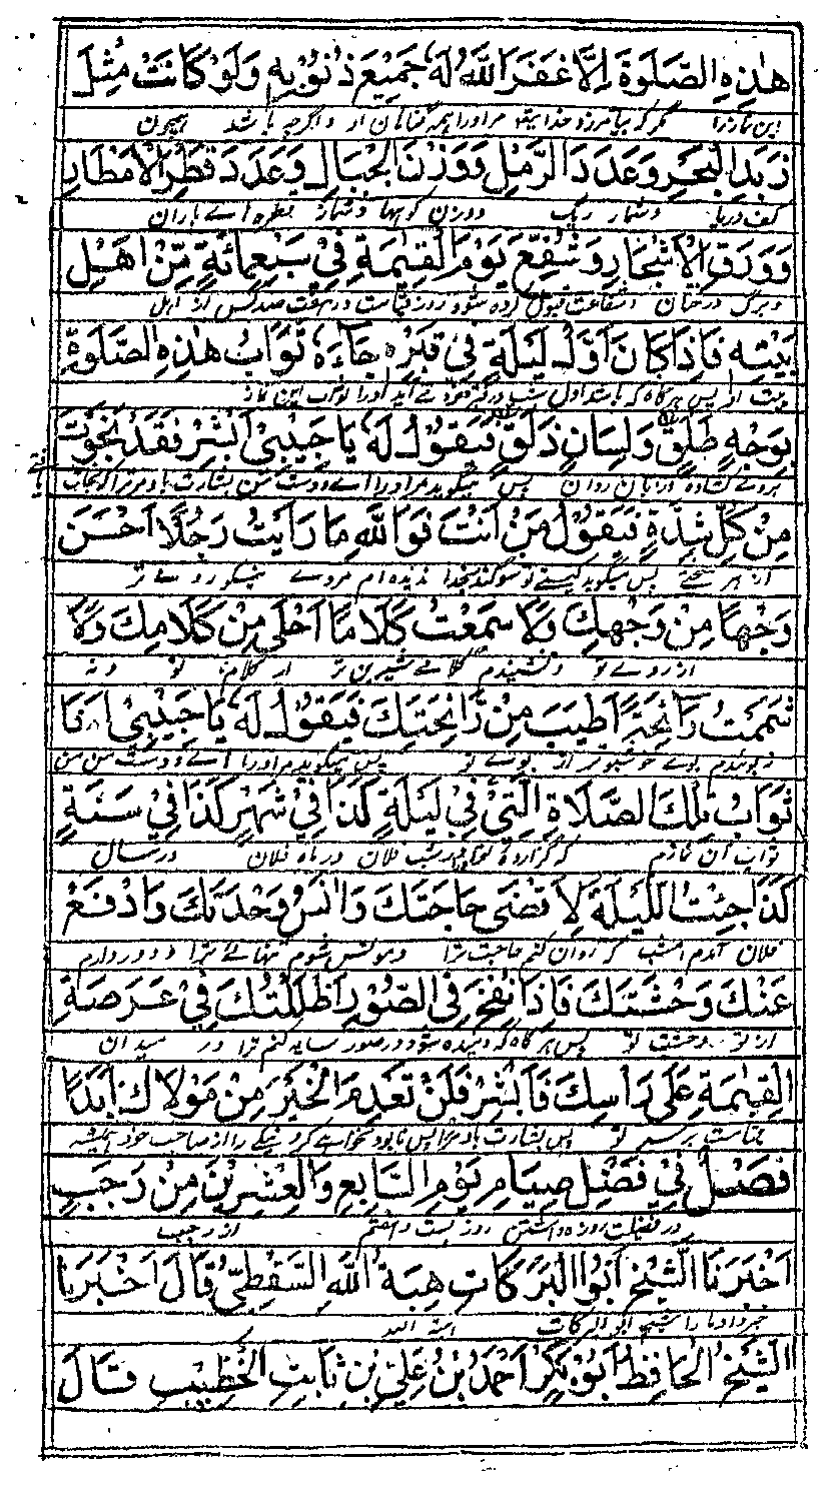 هٰذِهِ الصَّلَوةَ اِلَّا غَفَرَ اللّٰهُ لَهٗ جَمِيْعَ ذُنُوْبِهٖ وَلَوْ كَانَتْ مِثْلَ
این نماز را مگر که بیامرزد خدایتعالی مر او را همه گناهان او و اگرچه باشد همچون
زَبَدِ الْبَحْرِ وَعَدَدَ الرَّمْلِ وَوَزْنَ الْجِبَالِ وَعَدَدَ قَطْرِ الْاَمْطَارِ
کف دریا و شمار ریگ و وزن کوهها و شمار قطره اے باران
وَوَرَقِ الْاَشْجَارِ وَشُفِّعَ يَوْمَ الْقِيٰمَةِ فِيْ سَبْعِمِائَةٍ مِّنْ اَهْلِ
و برگ درختان و شفاعت قبول کرده شود روز قیامت در هفت صد کس از اهل
بَيْتِهٖ فَاِذَا كَانَ اَوَّلُ لَيْلَةٍ فِيْ قَبْرِهٖ جَآءَهٗ ثَوَابُ هٰذِهِ الصَّلَوةِ
بیت او پس هرگاه که باشد اول شب در گور خود مے آید او را ثواب این نماز
بِوَجْهٍ طَلْقٍ وَلِسَانٍ ذَلْقٍ فَيَقُوْلُ لَهٗ يَا حَبِيْبِيْ اَبْشِرْ فَقَدْ نَجَوْتَ
بروے کشاده و زبان روان پس میگوید مر او را اے دوست من بشارت باد مر ترا که نجات
مِنْ كُلِّ شِدَّةٍ فَيَقُوْلُ مَنْ اَنْتَ فَوَاللّٰهِ مَا رَاَيْتُ رَجُلًا اَحْسَنَ
از هر سختی پس میگوید کیستی تو سوگند بخدا ندیده ام مردے نیکو رو تر
وَجْهًا مِنْ وَجْهِكَ وَلَا سَمِعْتُ كَلَامًا اَحْلٰى مِنْ كَلَامِكَ وَلَا
از روے تو و نشنیدم کلامے شیرین تر از کلام تو و نه
شَمَمْتُ رَائِحَةً اَطْيَبَ مِنْ رَّائِحَتِكَ فَيَقُوْلُ لَهٗ يَا حَبِيْبِيْ اَنَا
بوئیدم بوے خوشبوتر از بوے تو پس میگوید مر او را اے دوست من من
ثَوَابُ تِلْكَ الصَّلَاةِ الَّتِيْ فِيْ لَيْلَةِ كَذَا فِيْ شَهْرِ كَذَا فِيْ سَنَةِ
ثواب آن نمازم که گزارده در شب فلان در ماه فلان در سال
كَذَا جِئْتُ اللَّيْلَةَ لِاَ قْضَى حَاجَتَكَ وَاٰنَسُ وَحْدَتَكَ وَاَدْفَعُ
فلان آمدم امشب که روان کنم حاجت ترا و مونس شوم تنهائے ترا و دور دارم
عَنْكَ وَحْشَتَكَ فَاِذَا نُفِخَ فِى الصُّوْرِ اَظْلَلْتُكَ فِيْ عَرَصَةِ
از تو وحشت تو پس هرگاه که دمیده شود در صور سایه کنم ترا در میدان
الْقِيٰمَةِ عَلٰى رَاْسِكَ فَاَبْشِرْ فَلَنْ تَعْدِمَ الْخَيْرَ مِنْ مَوْلَاكَ اَبَدًا
قیامت بر سر تو پس بشارت باد ترا پس نابود نخواهے کرد نیکے را از صاحب خود همیشه
فَصْلٌ فِيْ فَضْلِ صِيَامِ يَوْمِ السَّابِعِ وَالْعِشْرِيْنَ مِنْ رَجَبٍ
در فضیلت روزه داشتن روز بست و هفتم از رجب
اَخْبَرَنَا الشَّيْخُ اَبُو الْبَرَكَاتِ هِبَةُ اللّٰهِ السَّقَطِيُّ قَالَ اَخْبَرَنَا
خبر داد ما را شیخ ابو البرکات
الشَّيْخُ الْحَافِظُ اَبُوْ بَكْرٍ اَحْمَدُ بْنُ عَلِيِّ بْنِ ثَابِتِ الْخَطِيْبِ قَالَ